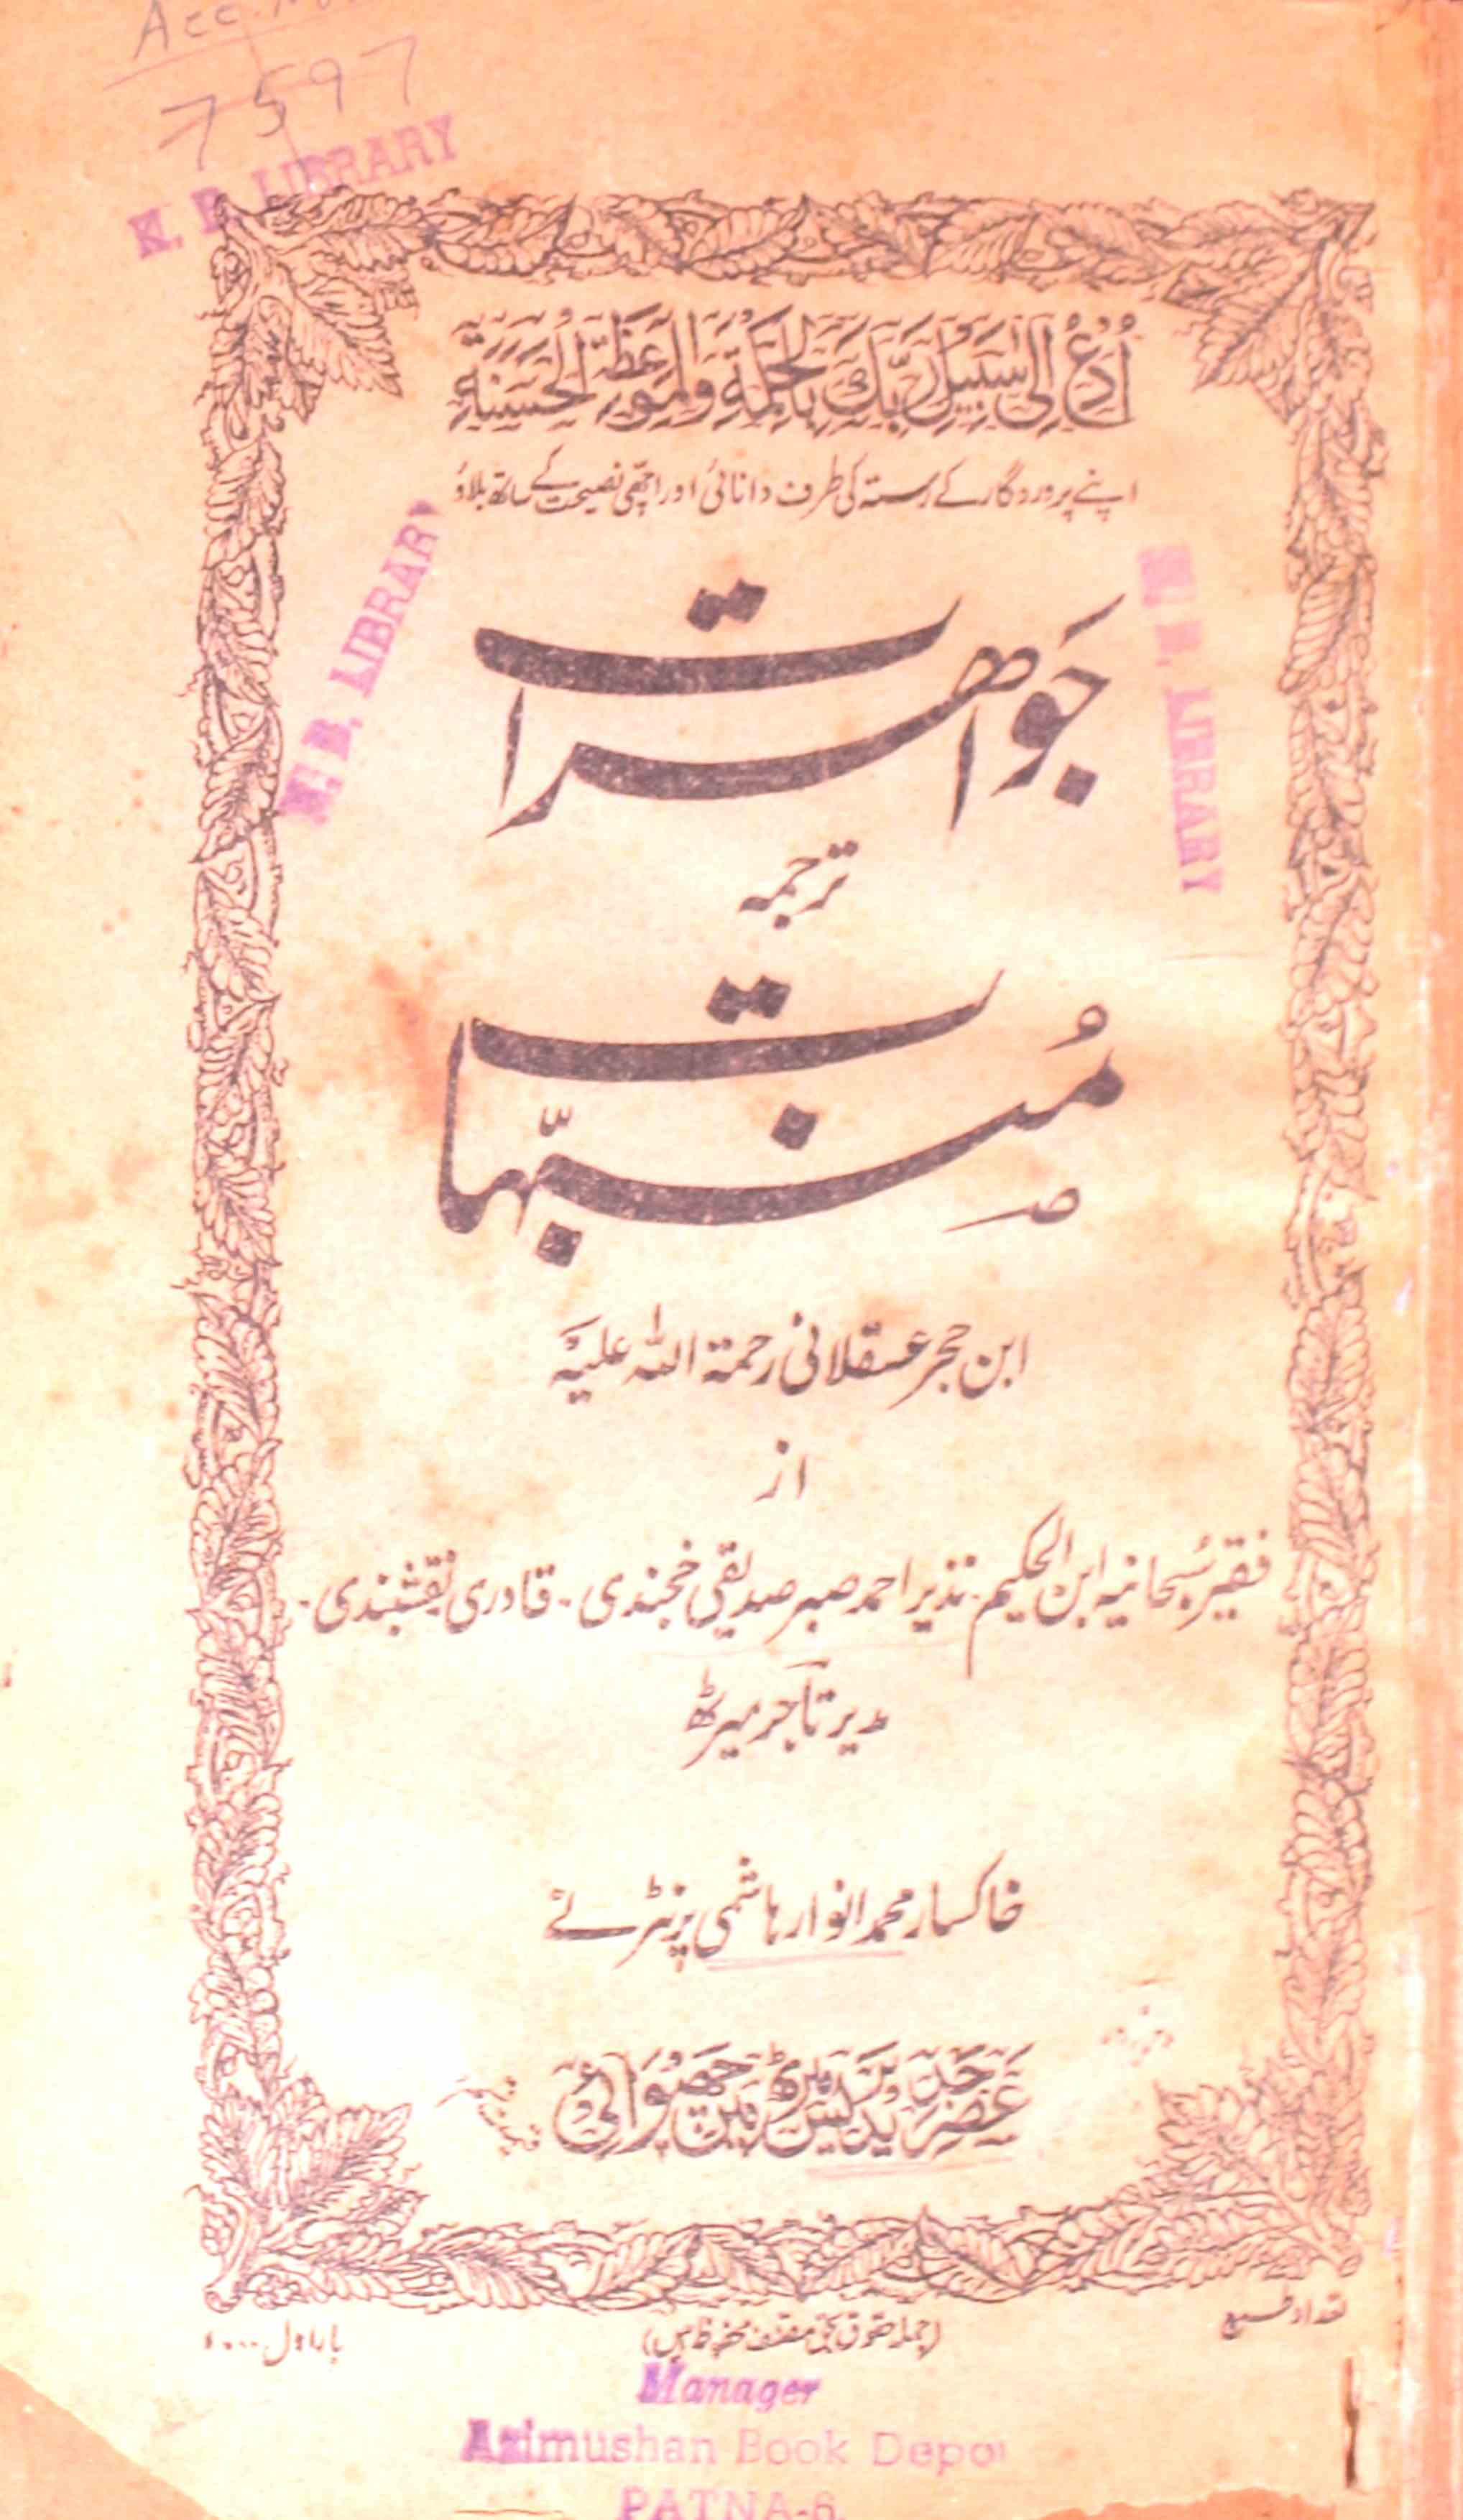 Acc. No.
7597
K. B. LIBRARY
اُدْعُ اِلٰى سَبِيْلِ رَبِّكَ بِالْحِكْمَةِ وَالْمَوْعِظَةِ الْحَسَنَةِ
اپنے پروردگار کے رستہ کی طرف دانائی اور اچھی نصیحت کے ساتھ بلاؤ
K. B. LIBRARY
B. LIBRARY
جَواھرات
ترجمہ
مُنبّہات
ابن حجر عسقلانی رحمۃ اللہ علیہ
از
فقیر سُبحانیہ ابن الحکیم۔ نذیر احمد صبر صدیقی خجندی۔ قادری نقشبندی۔
مدیر تاجر میرٹھ
خاکسار محمد انوار ہاشمی پرنٹر نے
عصر جدید پریس میرٹھ میں چھپوائی
تعداد طبع
(جملہ حقوق بحق مصنف محفوظ ہیں)
بار اول ۱۰۰۰
Manager
Azimushan Book Depot
PATNA-6.